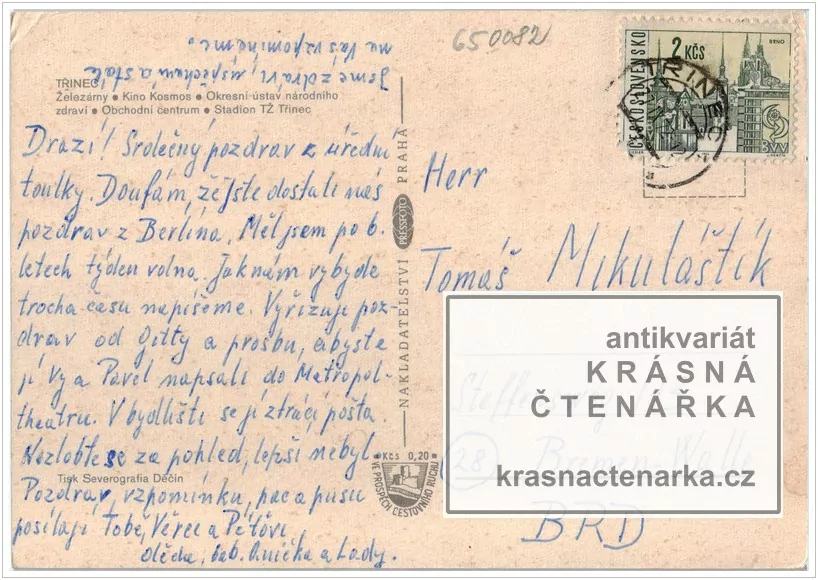 650082
TŘINEC
Železárny • Kino Kosmos • Okresní ústav národního
zdraví • Obchodní centrum • Stadion TŽ Třinec
Drazí! Srdečný pozdrav z úřední
toulky. Doufám, že jste dostali náš
pozdrav z Berlína. Měl jsem po 6.
letech týden volna. Jak nám vybyde
trocha času napíšeme. Vyřizuji poz-
drav od Gitty a prosbu, abyste
jí Vy a Pavel napsali do Metropol-
theatru. V bydlišti se jí ztrácí pošta.
Nezlobte se za pohled, lepší nebyl.
Tisk Severografia Děčín
Pozdrav, vzpomínku, pac a pusu
posílají Tobě, Věrce a Péťovi
děda, bab. Anička a Lady.
Jsme zdrávi, úspěcháni a stále
na Vás vzpomínáme.
NAKLADATELSTVÍ PRESSFOTO PRAHA
Kčs 0,20
VE PROSPĚCH CESTOVNÍHO RUCHU
ČESKOSLOVENSKO
2 KČS
BRNO
BVV
TŘINEC
Herr
Tomáš Mikuláštík
(28) Bremen-Walle
BRD
antikvariát
KRÁSNÁ
ČTENÁŘKA
krasnactenarka.cz